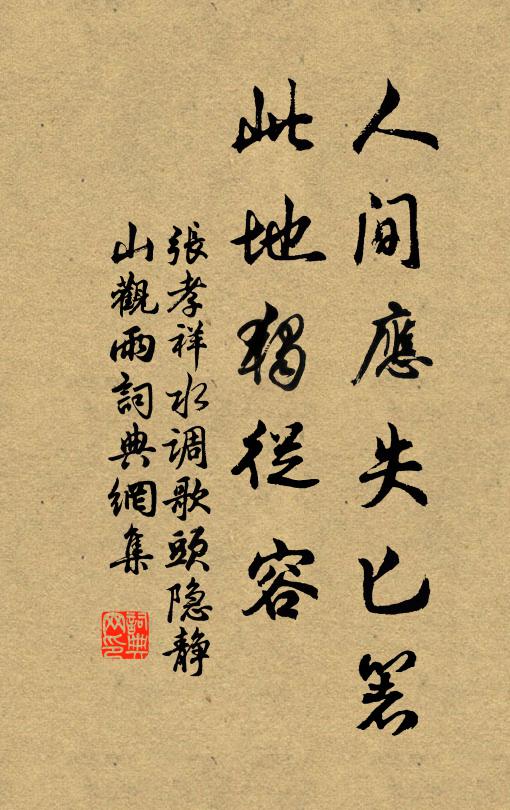 人间應失匕箸
此地獨從容
張孝祥水调歌頭隐静
山觀雨詞典網集
詞典網印